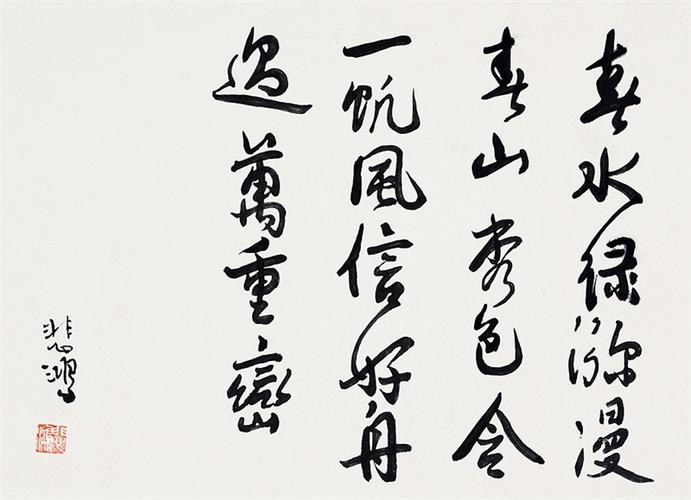 春水緑瀰漫
春山秀色含
一帆風信好舟
過萬重巒
悲鴻
悲鴻